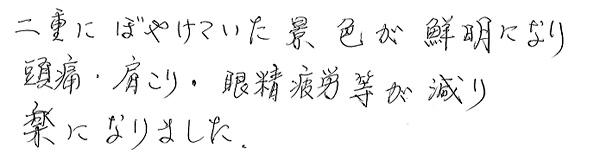 二重にぼやけていた景色が鮮明になり
頭痛・肩こり・眼精疲労等が減り
楽になりました.